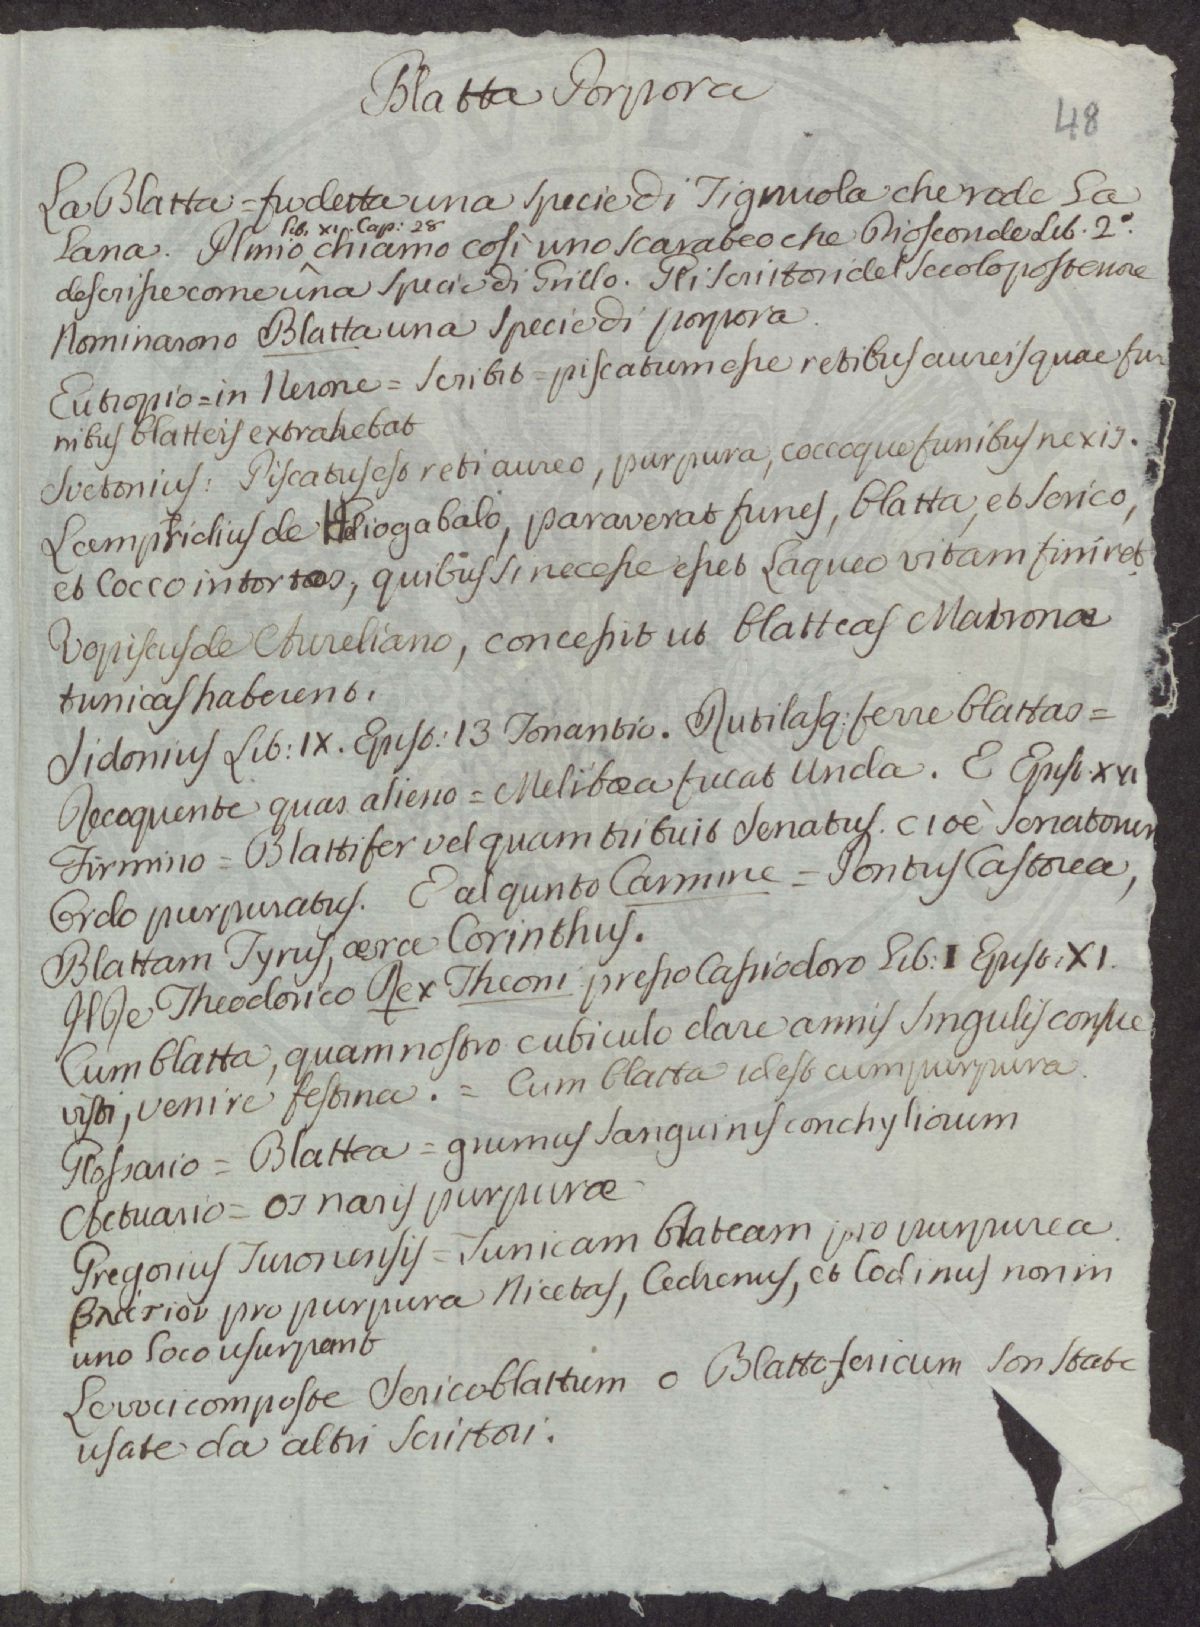 Blatta Porpora
48
La Blatta = fu detta una specie di Tignuola che rode La
Lib. XI. Cap: 28
Lana. Plinio chiamo cosi uno scarabeo che Dioscoride Lib. 2°.
descrisse come una specie di Grillo. Gli scrittori del secolo posteriore
Nominarono Blatta una specie di porpora
Eutropio = in Nerone = scribit = piscatum esse retibus aureis quae fu
nibus blatteis extrahebat
Svetonius: Piscatus est reti aureo, purpura, coccoque funibus nexis.
Lampridius de Heliogabalo, paraverat funes, blatta, et serico,
et Cocco intortos, quibus si necesse esset Laqueo vitam finiret
Vopiscus de Aureliano, concessit ut blatteas Matronæ
tunicas haberent.
Sidonius Lib: IX. Epist: 13 Tonantio. Rutilasq: ferre blattas =
Recoquente quas alieno = Melibœa fucat Unda. E Epist. XVI
Firmino = Blattifer vel quam tribuit Senatus. cioè Senatorum
Ordo purpuratus. E al qunto Carmine = Pontus Castorea,
Blattam Tyrus, æra Corinthus.
Il Re Theodorico Rex Theoni presso Cassiodoro Lib: I Epist: XI.
Cum blatta, quam nostro cubiculo dare annis singulis consue
visti, venire festina. = Cum blatta idest cum purpura.
Glossario = Blattea = grumus sanguinis conchyliorum
Actuario = os naris purpuræ
Gregorius Turonensis = Tunicam blateam pro purpurea.
βλάτιον pro purpura Nicetas, Cedrenus, et Codinus non in
uno Loco usurpant
Le voci composte Sericoblattum o Blattosericum son state
usate da altri scrittori.